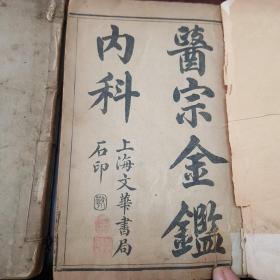 醫宗金鑑
内科
上海文華書局
石印